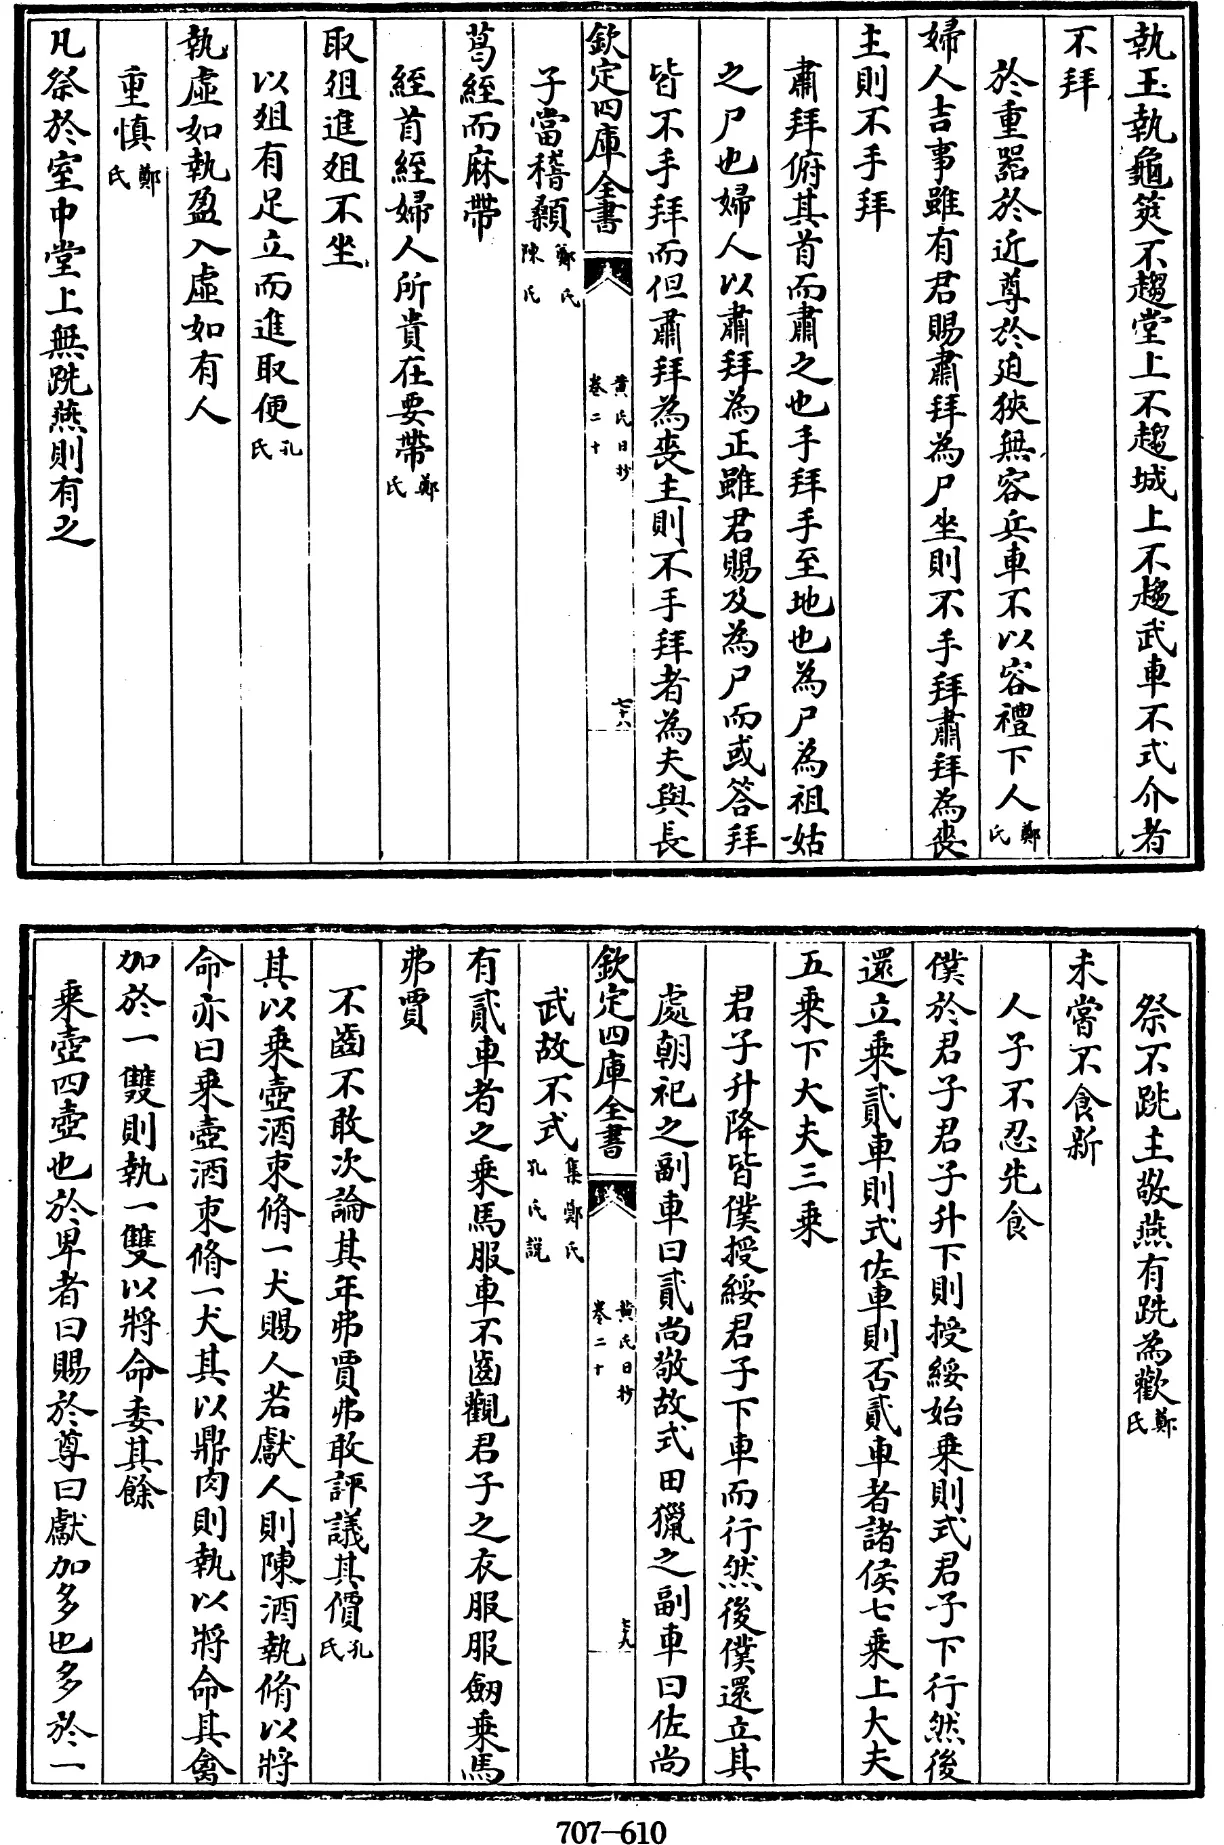 執玉執龜筴不趨堂上不趨城上不趨武車不式介者
不拜
於重器於近尊於迫狹無容兵車不以容禮下人鄭氏
婦人吉事雖有君賜肅拜為尸坐則不手拜肅拜為喪
主則不手拜
肅拜俯其首而肅之也手拜手至地也為尸為祖姑
之尸也婦人以肅拜為正雖君賜及為尸而或答拜
皆不手拜而但肅拜為喪主則不手拜者為夫與長
欽定四庫全書
黃氏日抄
卷二十
七十八
子當稽顙鄭氏陳氏
葛絰而麻帶
絰首絰婦人所貴在要帶鄭氏
取俎進俎不坐
以俎有足立而進取便孔氏
執虛如執盈入虛如有人
重慎鄭氏
凡祭於室中堂上無跣燕則有之
祭不跣主敬燕有跣為歡鄭氏
未嘗不食新
人子不忍先食
僕於君子君子升下則授綏始乘則式君子下行然後
還立乘貳車則式佐車則否貳車者諸侯七乘上大夫
五乘下大夫三乘
君子升降皆僕授綏君子下車而行然後僕還立其
處朝祀之副車曰貳尚敬故式田獵之副車曰佐尚
欽定四庫全書
黃氏日抄
卷二十
七十九
武故不式集鄭氏孔氏說
有貳車者之乘馬服車不齒觀君子之衣服服劒乘馬
弗賈
不齒不敢次論其年弗賈弗敢評議其價孔氏
其以乘壺酒束脩一犬賜人若獻人則陳酒執脩以將
命亦曰乘壺酒束脩一犬其以鼎肉則執以將命其禽
加於一雙則執一雙以將命委其餘
乘壺四壺也於卑者曰賜於尊曰獻加多也多於一
707-610